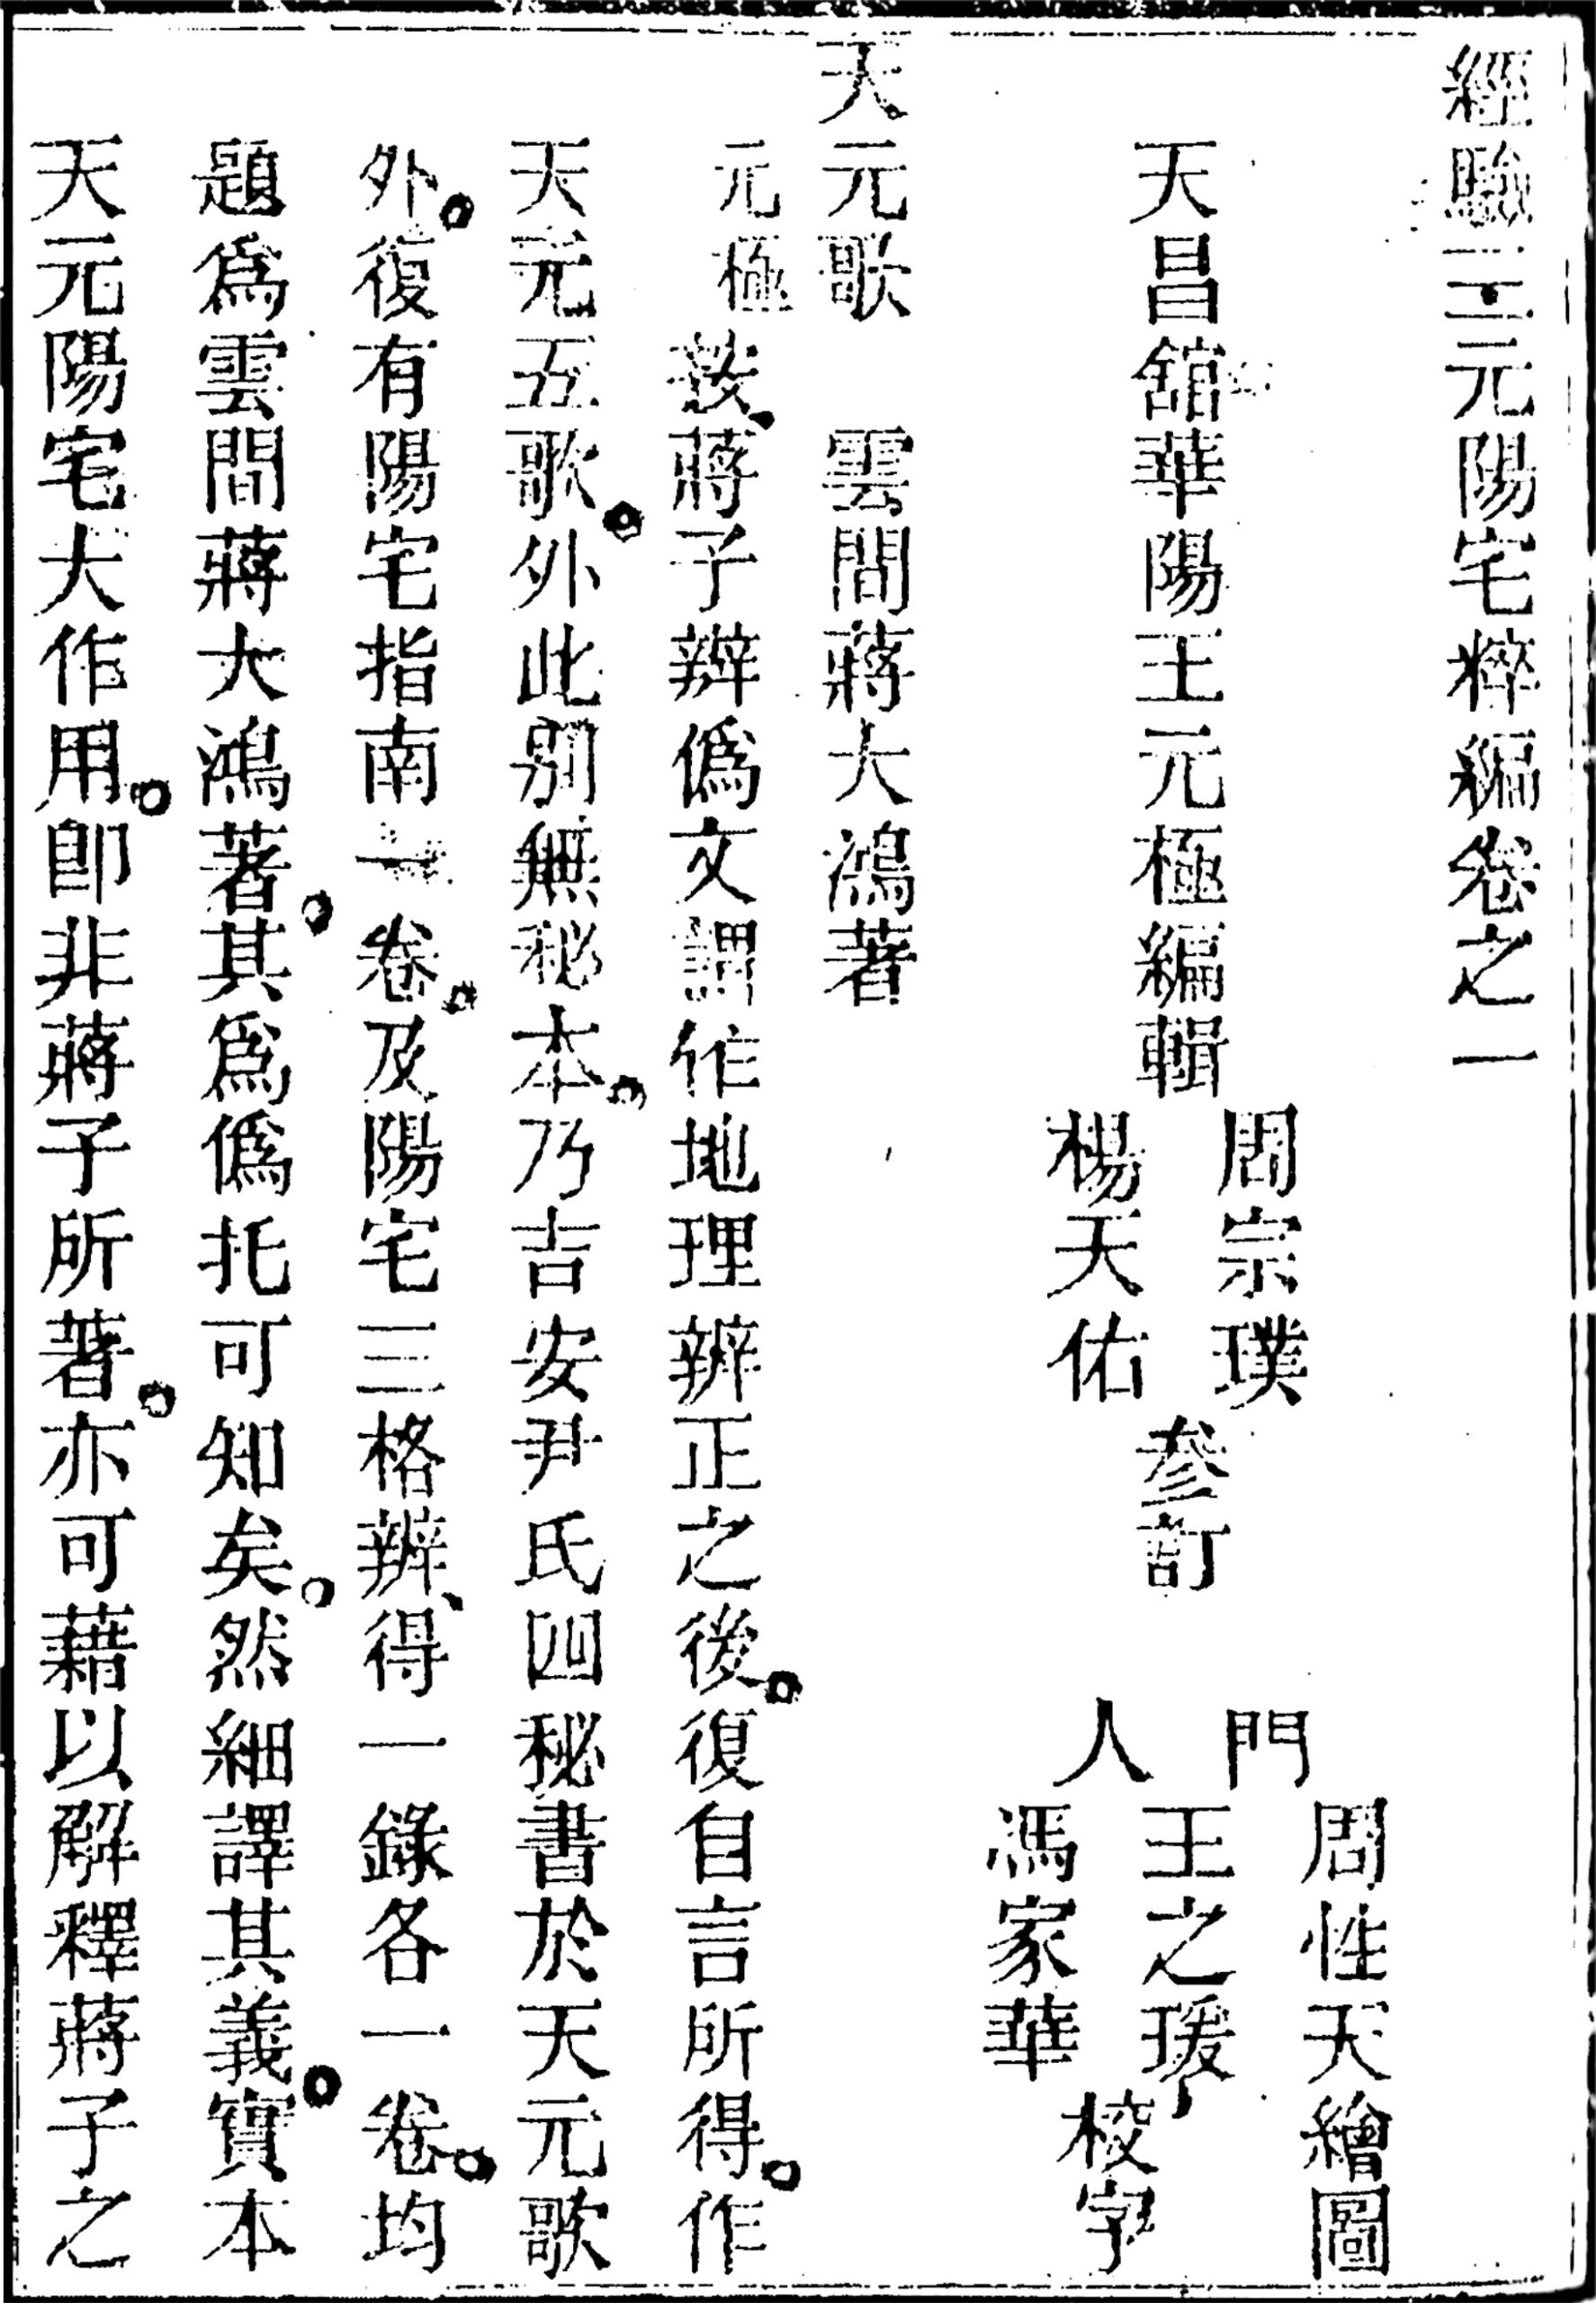 經驗三元陽宅粹編卷之一
天昌舘華陽王元極編輯
周宗璞
楊天佑
參訂
門人
周性天繪圖
王之瑗
馮家華
校字
天元歌　雲間蔣大鴻著
元極按、蔣子辨僞文謂作地理辨正之後。復自言所得。作
天元五歌。外此别無秘本。乃吉安尹氏四秘書於天元歌
外。復有陽宅指南一卷。及陽宅三格辨、得一錄各一卷。均
題爲雲間蔣大鴻著。其爲僞托可知矣。然細譯其義。實本
天元陽宅大作用。卽非蔣子所著。亦可藉以解釋蔣子之